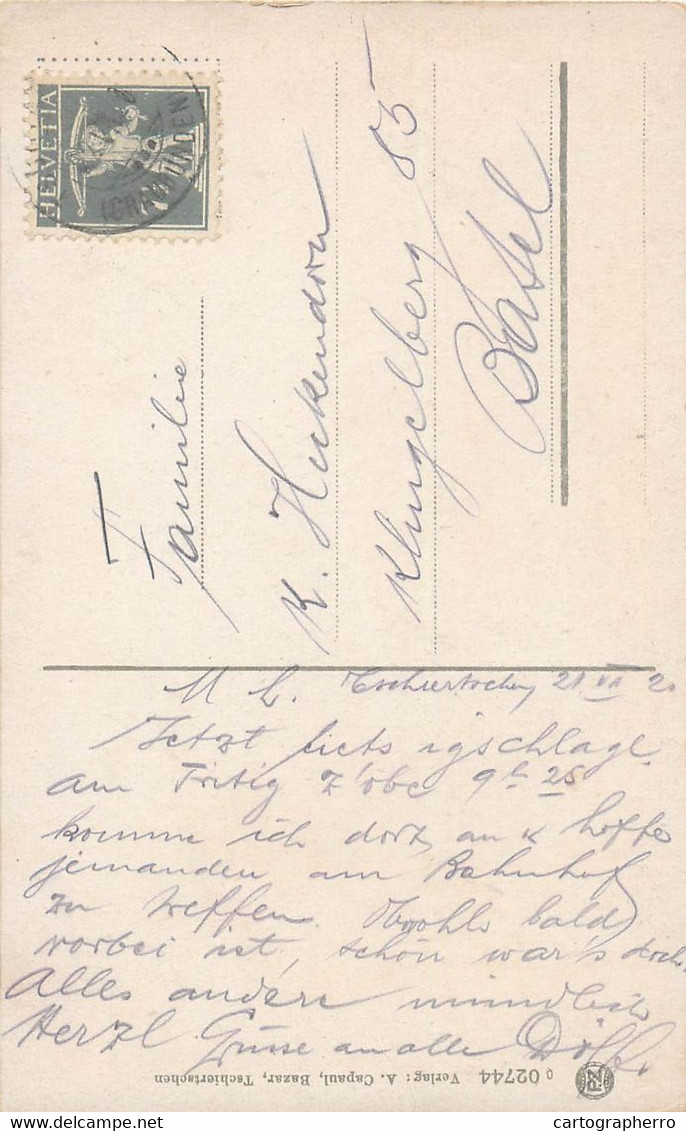 HELVETIA
(GRAUBÜNDEN)
Familie
K. Heckendorn
Klingelberg 85
Basel
M L. Tschiertschen, 21 VII 2.
Jetzt hets igschlage.
am Fritig z'obe 9h 25
komme ich dort an & hoffe
jemanden am Bahnhof
zu treffen. Obwohls bald
vorbei ist, schön war's doch.
Alles andere mündlich
Herzl Grüsse an alle Dölf.
Q 02744 Verlag: A. Capaul, Bazar, Tschiertschen
delcampe.net
cartographerro